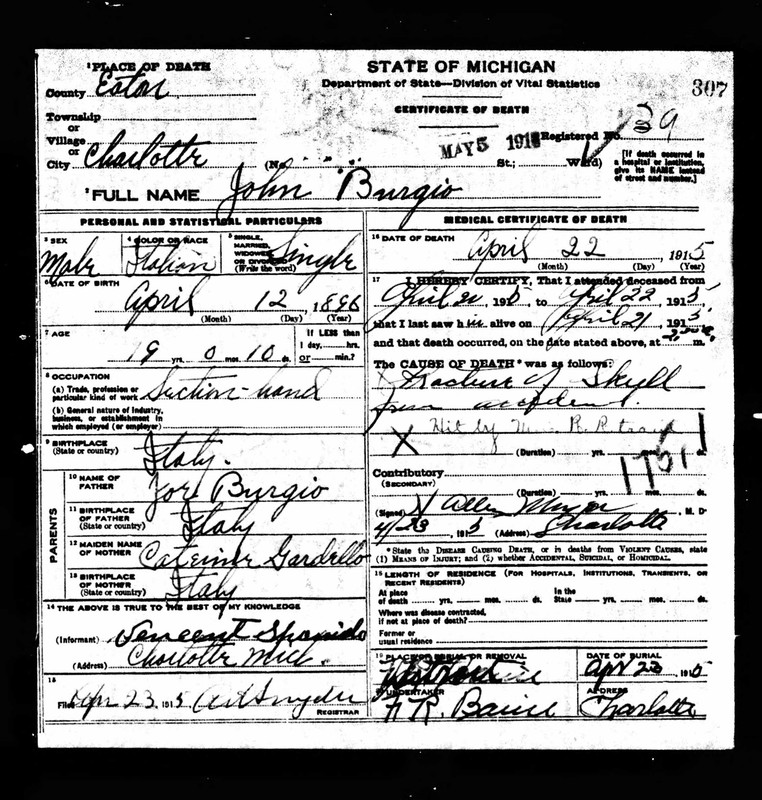 307
STATE OF MICHIGAN
Department of State—Division of Vital Statistics
CERTIFICATE OF DEATH
MAY 5 191
Registered No. 39
1 PLACE OF DEATH
County Eaton
Township
or
Village
or
City Charlotte (No. " " St.; Ward)
[If death occurred in a hospital or institution, give its NAME instead of street and number.]
2 FULL NAME John Burgio
PERSONAL AND STATISTICAL PARTICULARS
3 SEX
Male
4 COLOR OR RACE
Italian
5 SINGLE, MARRIED, WIDOWED OR DIVORCED (Write the word)
Single
6 DATE OF BIRTH
April 12, 1896
(Month) (Day) (Year)
7 AGE
19 yrs. 0 mos. 10 ds.
If LESS than 1 day,......hrs. or......min.?
8 OCCUPATION
(a) Trade, profession or particular kind of work Section-hand
(b) General nature of industry, business, or establishment in which employed (or employer)
9 BIRTHPLACE
(State or country) Italy.
PARENTS
10 NAME OF FATHER
Joe Burgio
11 BIRTHPLACE OF FATHER
(State or country) Italy
12 MAIDEN NAME OF MOTHER
Gardello
13 BIRTHPLACE OF MOTHER
(State or country) Italy
14 THE ABOVE IS TRUE TO THE BEST OF MY KNOWLEDGE
(Informant)
(Address) Charlotte Mich.
15
Filed Apr 23 1915 Snyder
REGISTRAR
MEDICAL CERTIFICATE OF DEATH
16 DATE OF DEATH
April 22 1915
(Month) (Day) (Year)
17 I HEREBY CERTIFY, That I attended deceased from
April 21, 1915, to April 22 1915,
that I last saw him alive on April 21, 1915
and that death occurred, on the date stated above, at m.
The CAUSE OF DEATH* was as follows:
X Fracture of Skull
from accident.
X Hit by R.R. train
(Duration) yrs. mos. ds.
Contributory
(SECONDARY)
(Duration) yrs. mos. ds.
(Signed) X Allen M. D.
4/23 1915 (Address) Charlotte
*State the DISEASE CAUSING DEATH, or in deaths from VIOLENT CAUSES, state
(1) MEANS OF INJURY; and (2) whether ACCIDENTAL, SUICIDAL, or HOMICIDAL.
18 LENGTH OF RESIDENCE (FOR HOSPITALS, INSTITUTIONS, TRANSIENTS, OR RECENT RESIDENTS)
At place of death yrs. mos. ds. In the State yrs. mos. ds.
Where was disease contracted, if not at place of death?
Former or usual residence
19 PLACE OF BURIAL OR REMOVAL
DATE OF BURIAL
Apr 23 1915
20 UNDERTAKER
ADDRESS
Charlotte